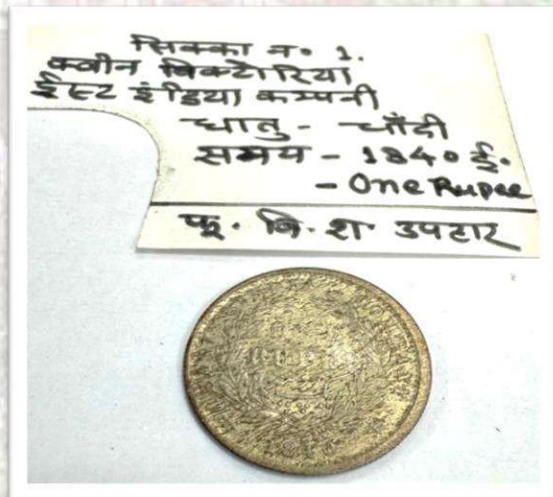 सिक्का न० 1.
क्वीन विक्टोरिया
ईस्ट इंडिया कम्पनी
धातु - चाँदी
समय - 1840 ई.
- One Rupee
फू. वि. श. उपहार